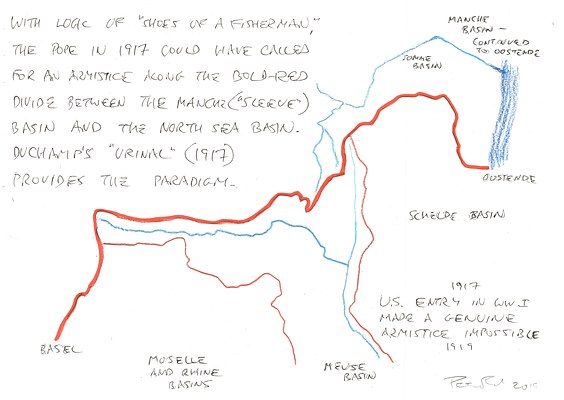 WITH LOGIC OF "SHOES OF A FISHERMAN",
THE POPE IN 1917 COULD HAVE CALLED
FOR AN ARMISTICE ALONG THE BOLD-RED
DIVIDE BETWEEN THE MANCHE ("SLEEVE")
BASIN AND THE NORTH SEA BASIN.
DUCHAMP'S "URINAL" (1917)
PROVIDES THE PARADIGM.
MANCHE
BASIN -
CONTINUED
TO OOSTENDE
SOMME
BASIN
OOSTENDE
SCHELDE BASIN
1917
U.S. ENTRY IN WWI
MADE A GENUINE
ARMISTICE IMPOSSIBLE
1919
BASEL
MOSELLE
AND RHINE
BASINS
MEUSE
BASIN
2015